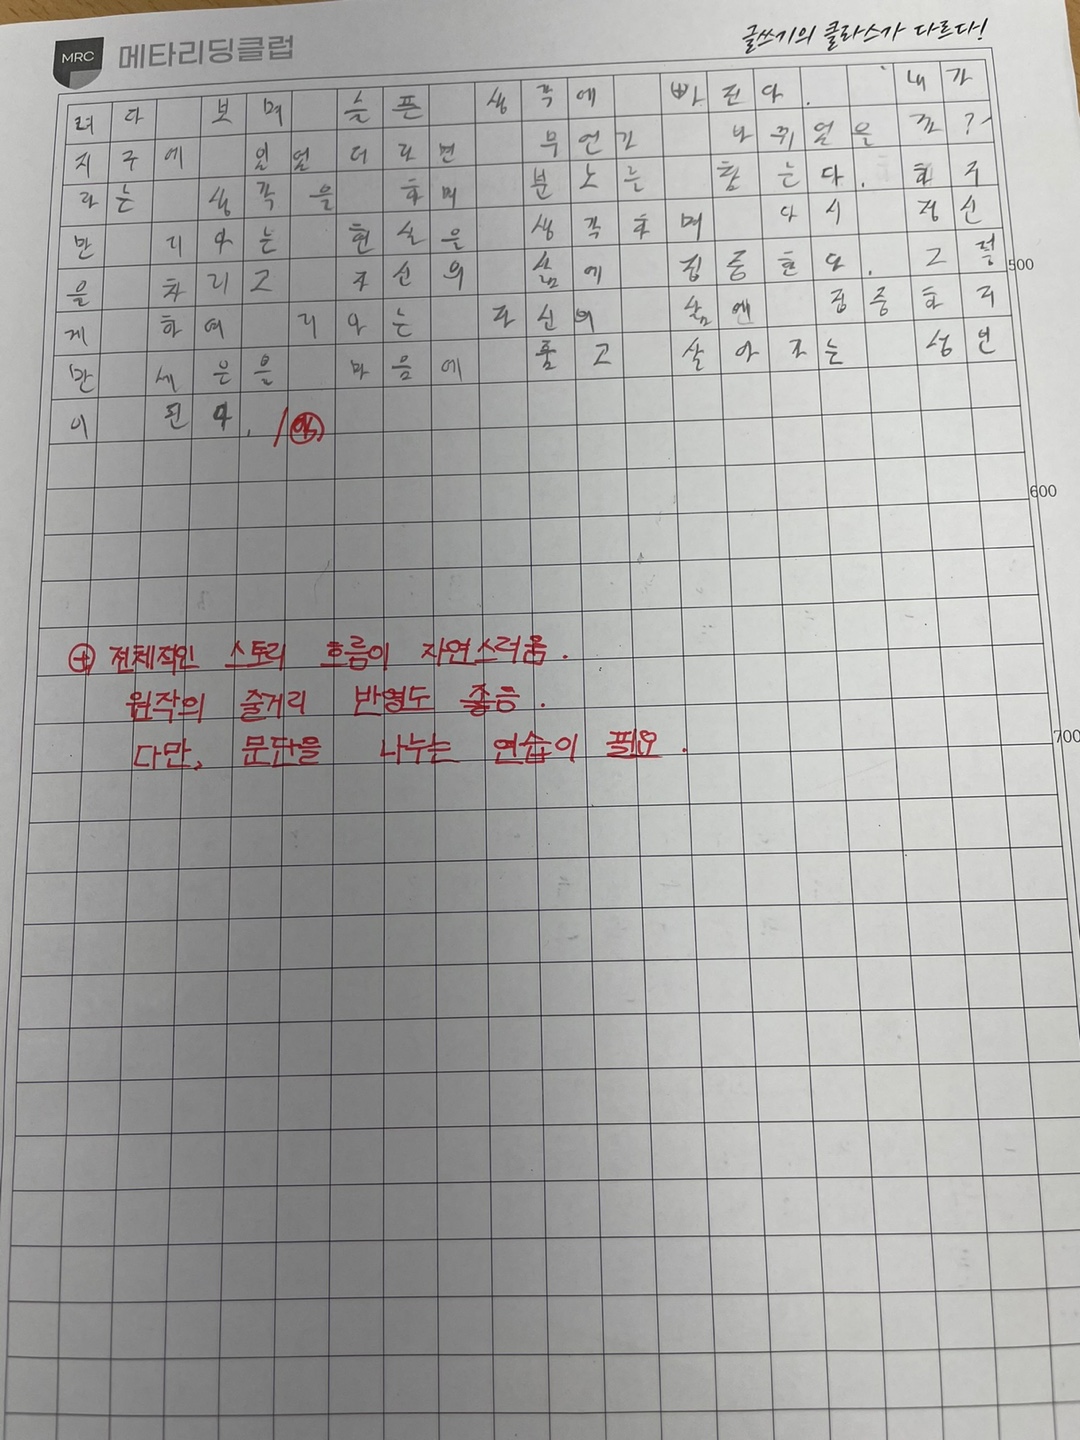 MRC 메타리딩클럽
글쓰기의 클라스가 다르다!
려다 보며 슬픈 생각에 빠진다. 내가
지구에 있었더라면 무언가 바뀌었을까?
라는 생각을 하며 분노를 참는다. 하지
만 리아는 현실을 생각하며 다시 정신
을 차리고 자신의 삶에 집중한다. 그렇
500
게 하여 리아는 자신의 삶에 집중하지
만 세은을 마음에 품고 살아가는 성인
이 된다.
600
⊕ 전체적인 스토리 흐름이 자연스러움.
원작의 줄거리 반영도 좋음.
다만, 문단을 나누는 연습이 필요.
700